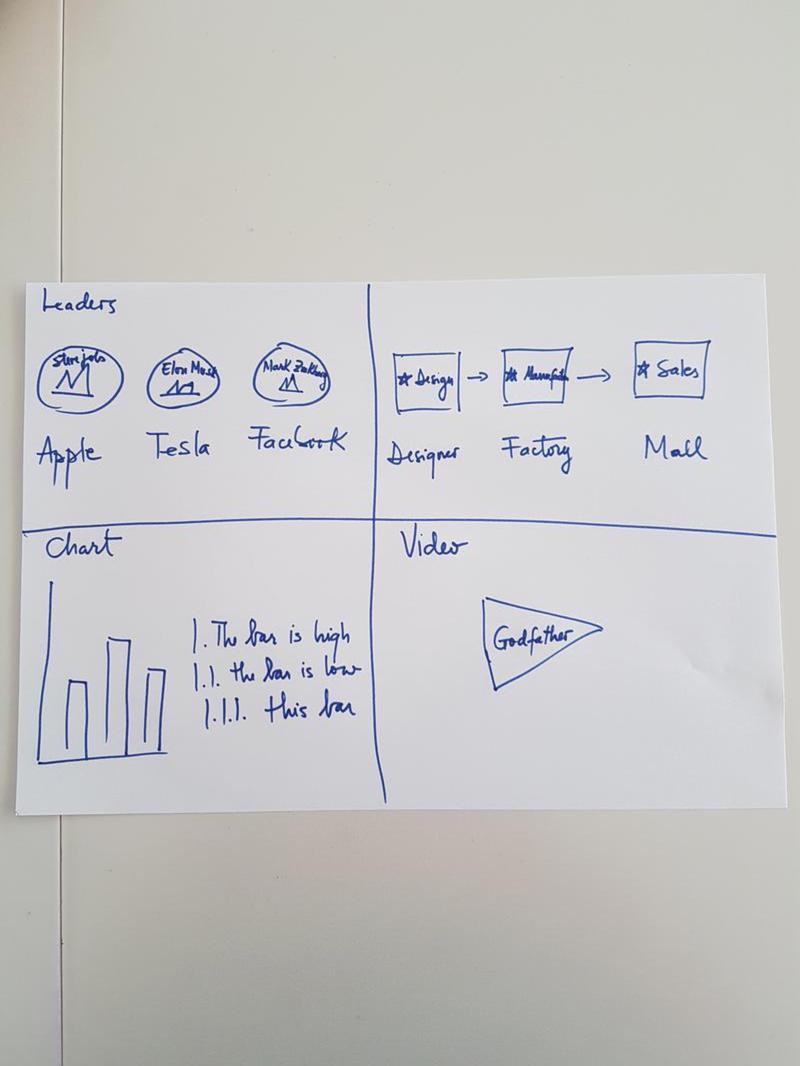 Leaders
Steve jobs
Elon Musk
Mark
Apple
Tesla
Facebook
Design
Sales
Designer
Factory
Mall
Chart
1. The bar is high
1.1. the bar is low
1.1.1. this bar
Video
Godfather